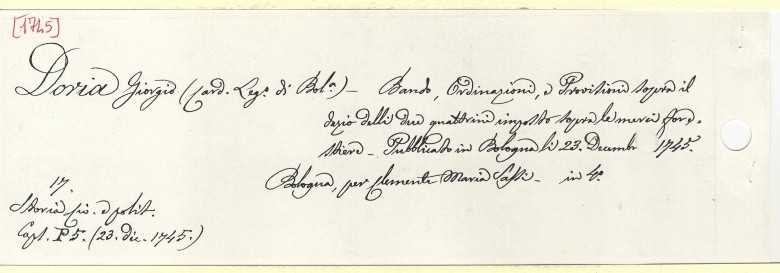 [1745]
Doria Giorgio (Card. Leg.º di Bol.ª) — Bando, Ordinazioni, e Provisioni sopra il
dazio delli due quattrini imposto sopra le merci fore-
stiere — Pubblicato in Bologna li 23. Decembr 1745.
Bologna, per Clemente Maria Sassi — in 4º
17.
Storia civ. e polit.
Cart. P 5. (23. dic. 1745.)